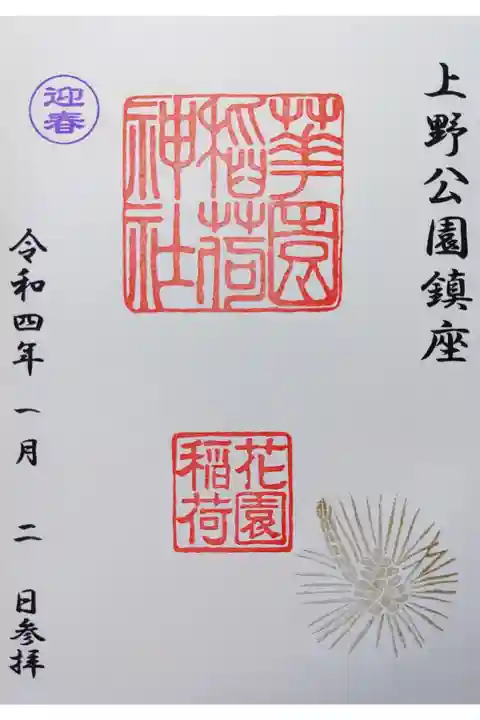 上野公園鎮座
華園
稲荷
神社
花園
稲荷
迎春
令和四年一月二日参拝